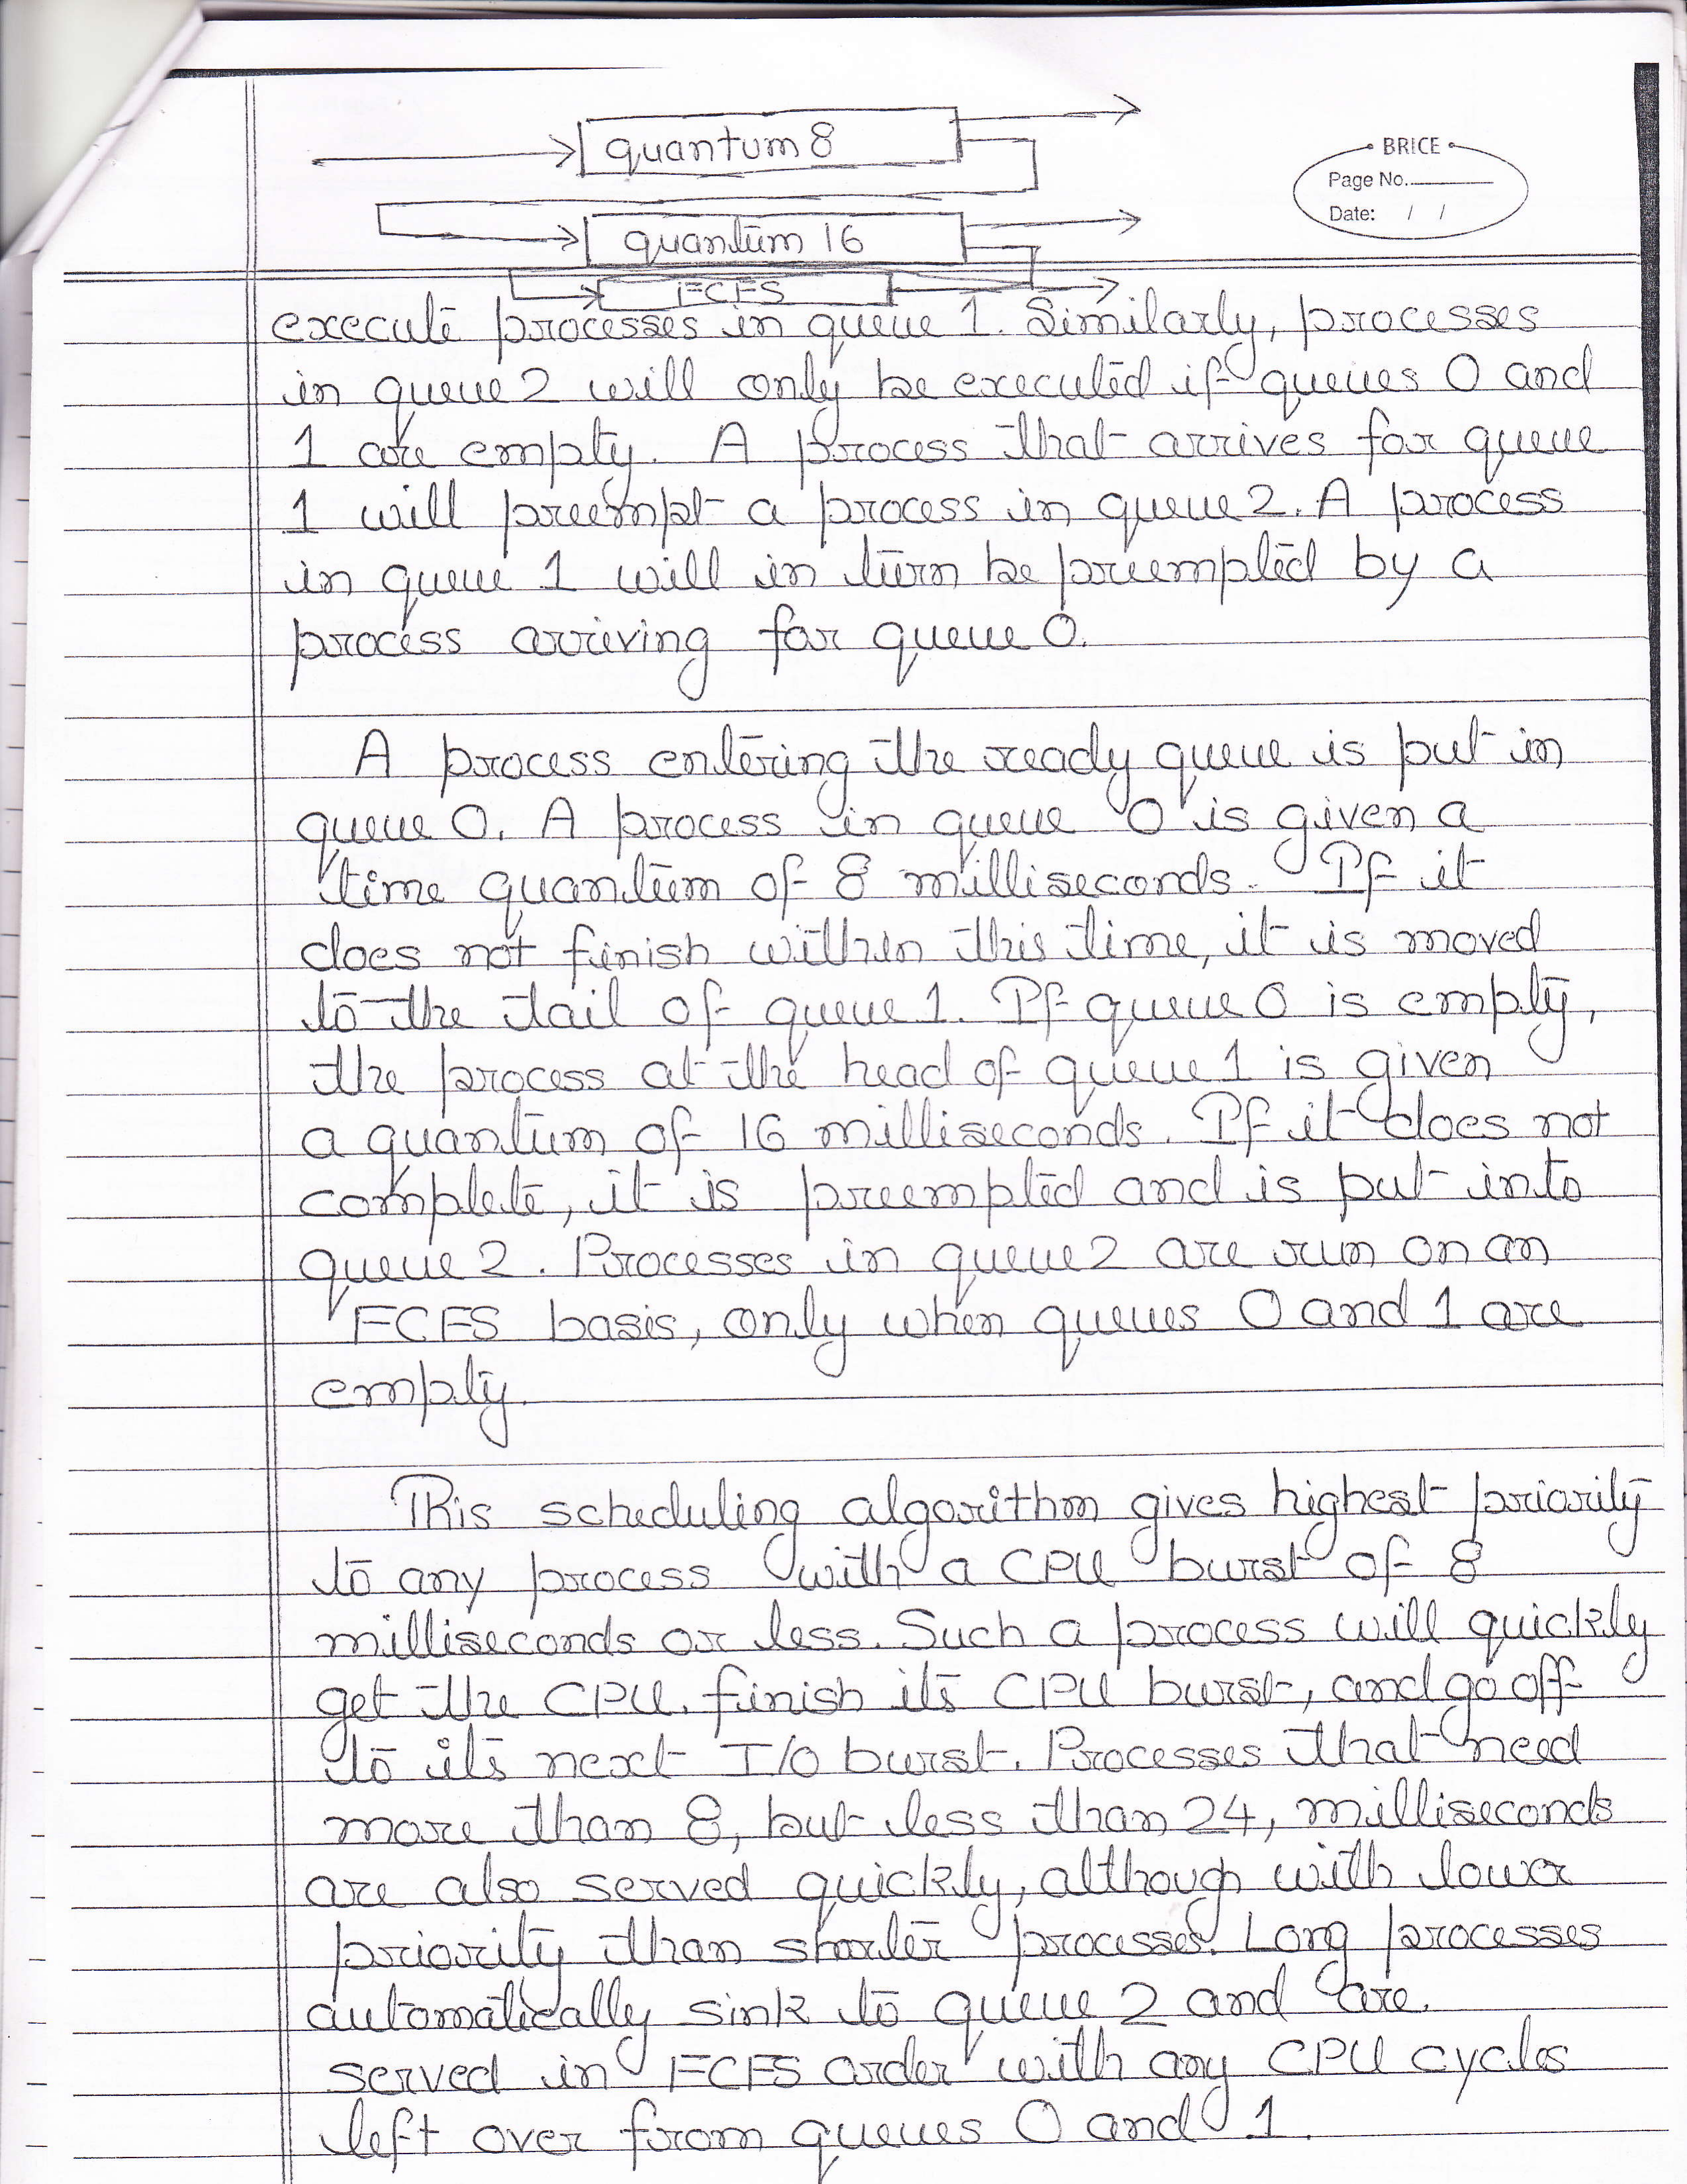 quantum 8
BRICE
Page No.
Date: / /
quantum 16
FCFS
execute processes in queue 1. Similarly, processes
in queue 2 will only be executed if queues 0 and
1 are empty. A process that arrives for queue
1 will preempt a process in queue 2. A process
in queue 1 will in turn be preempted by a
process arriving for queue 0.
A process entering the ready queue is put in
queue 0. A process in queue 0 is given a
time quantum of 8 milliseconds. If it
does not finish within this time, it is moved
to the tail of queue 1. If queue 0 is empty,
the process at the head of queue 1 is given
a quantum of 16 milliseconds. If it does not
complete, it is preempted and is put into
queue 2. Processes in queue 2 are run on an
FCFS basis, only when queues 0 and 1 are
empty.
This scheduling algorithm gives highest priority
to any process with a CPU burst of 8
milliseconds or less. Such a process will quickly
get the CPU, finish its CPU burst, and go off
to its next I/O burst. Processes that need
more than 8, but less than 24, milliseconds
are also served quickly, although with lower
priority than shorter processes. Long processes
automatically sink to queue 2 and are.
served in FCFS order with any CPU cycles
left over from queues 0 and 1.